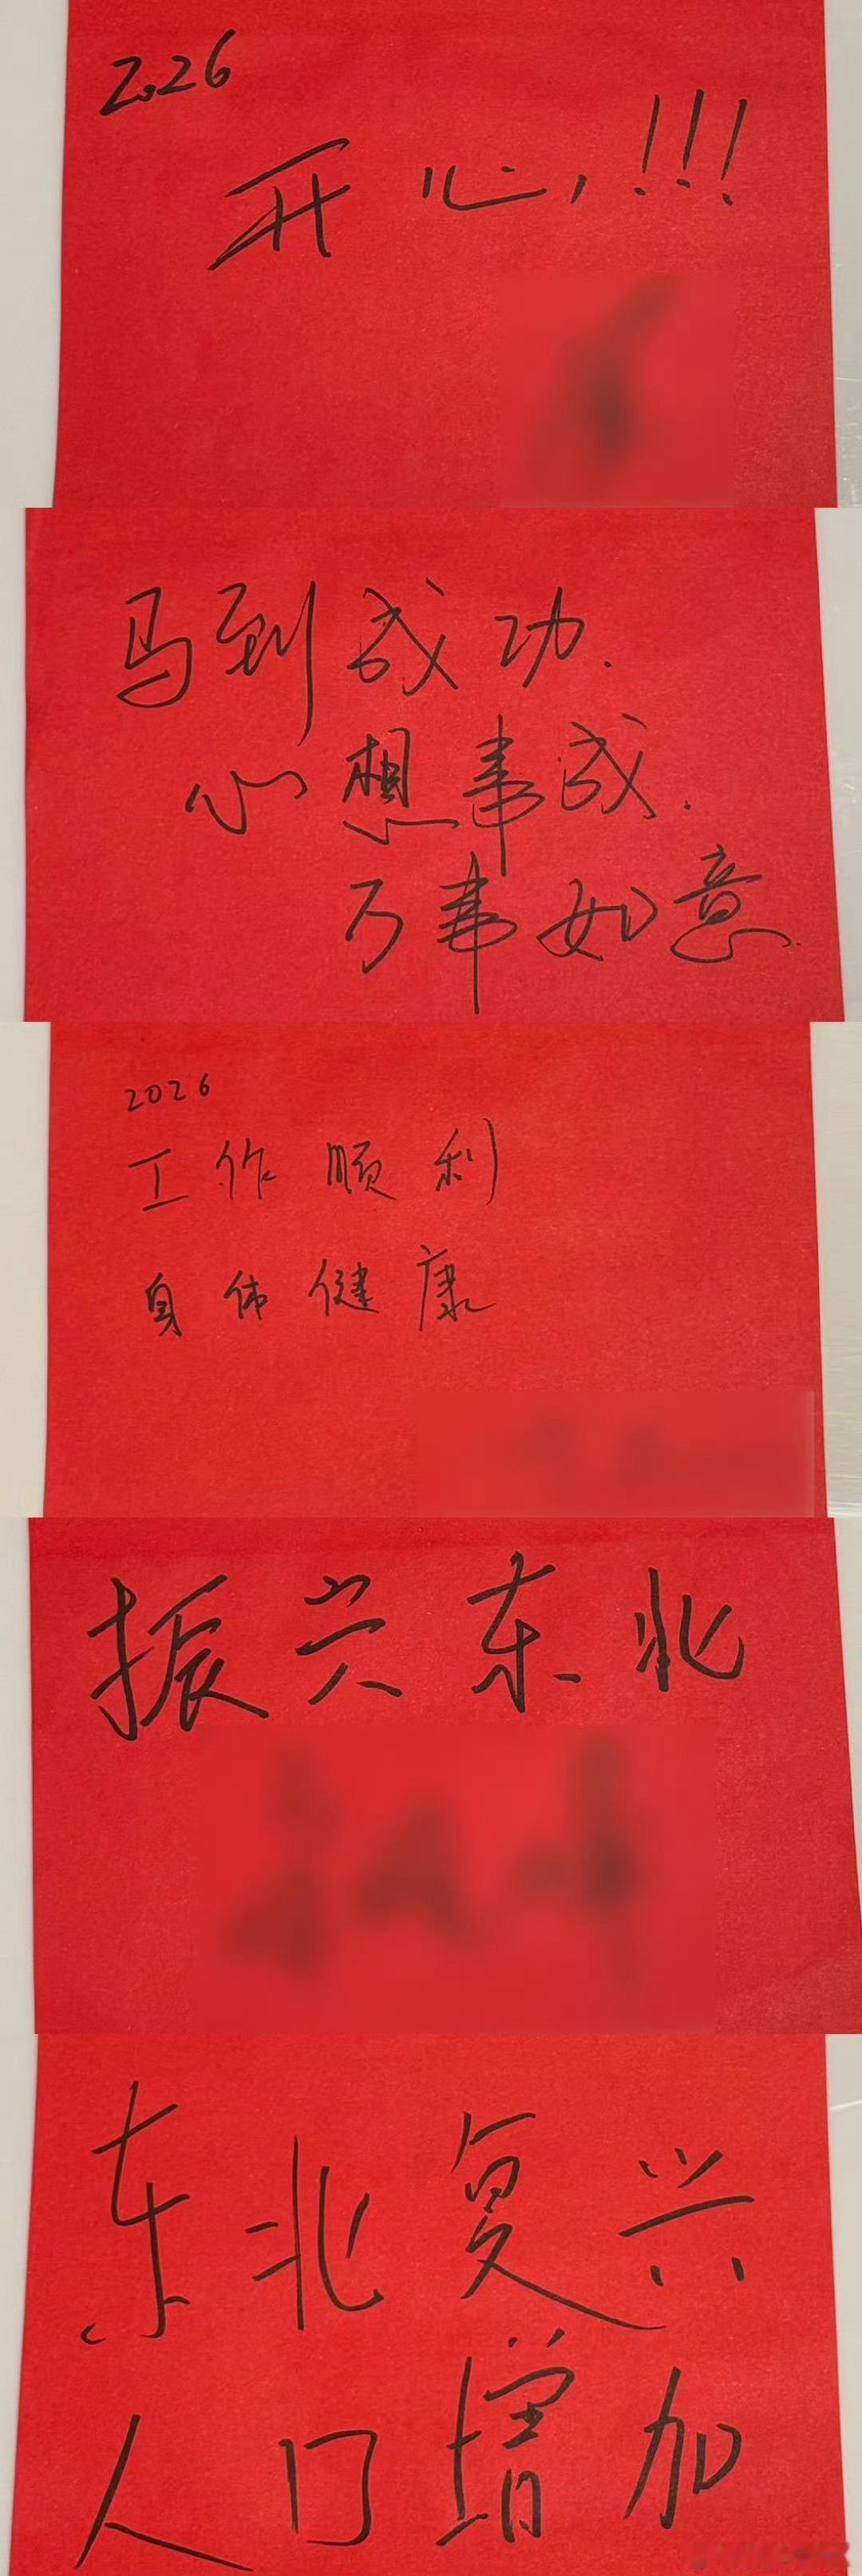 2026
开心,!!!
马到成功.
心想事成.
万事如意.
2026
工作顺利
身体健康
振兴东北
东北复兴
人口增加